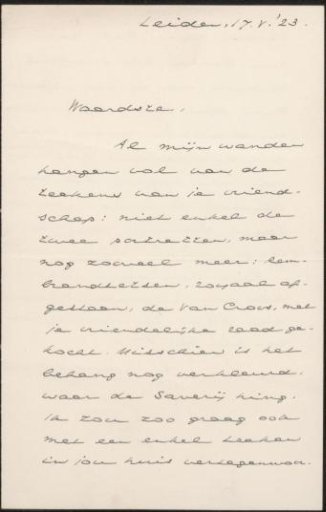 Leiden, 17.V.'23.
Waardste,
Al mijn wanden
hangen vol van de
teekens van je vriend-
schap: niet enkel de
twee portretten, maar
nog zooveel meer: Rem-
brandtetsen, royaal af-
gestaan, de Van Croos, met
je vriendelijke raad ge-
kocht. Misschien is het
behang nog verkleurd,
waar de Saverij hing.
Ik zou zoo graag ook
met een enkel teeken
in jou huis vertegenwoor-